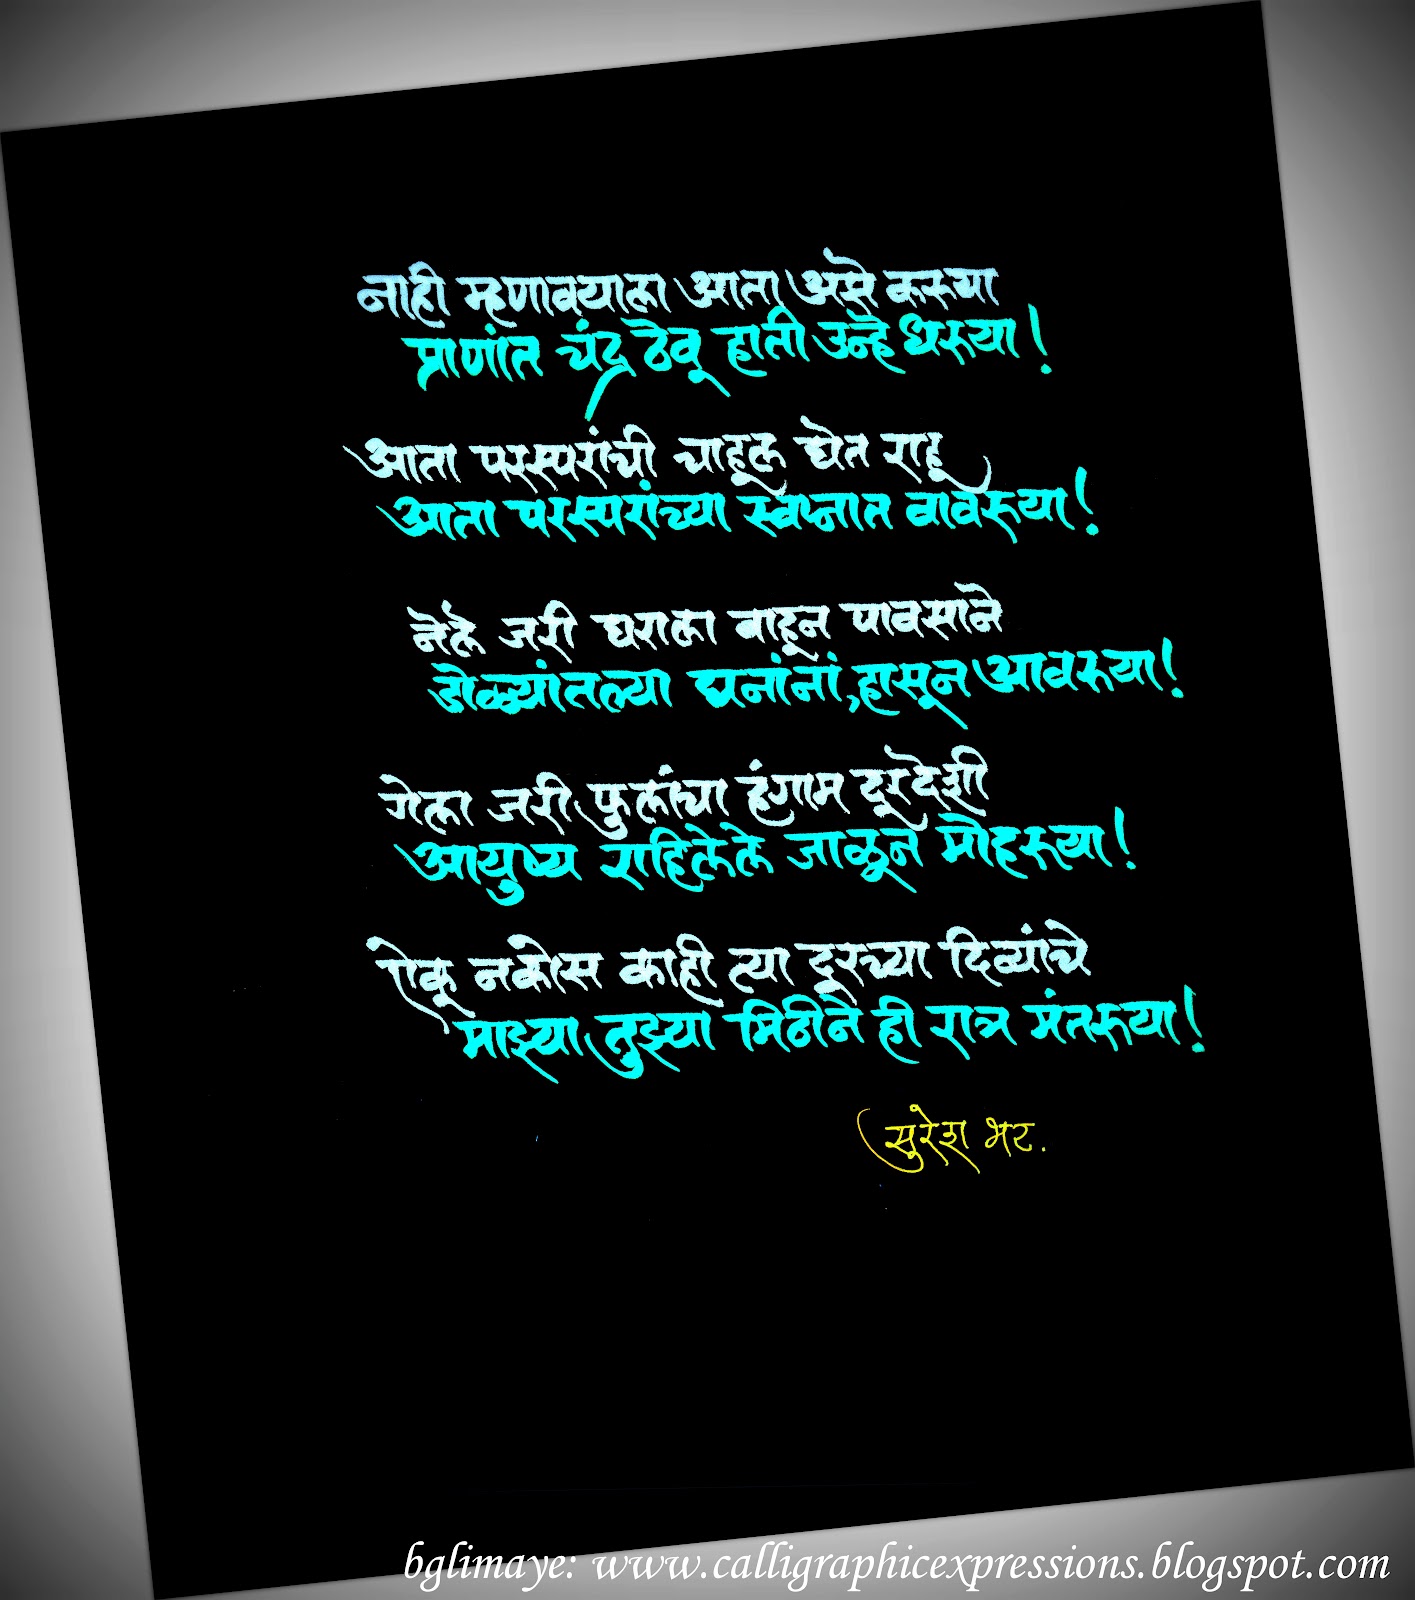 नाही म्हणावयाला आता असे करूया
प्राणांत चंद्र ठेवू हाती उन्हे धरूया!
आता परस्परांची चाहूल घेत राहू
आता परस्परांच्या स्वप्नात वावरूया!
नेले जरी घराला वाहून पावसाने
डोळ्यांतल्या घनांनां, हासून आवरूया!
गेला जरी फुलांचा हंगाम दूरदेशी
आयुष्य राहिलेले जाळून मोहरूया!
ऐकू नकोस काही त्या दूरच्या दिव्यांचे
माझ्या तुझ्या मिठीने ही रात्र मंतरूया!
सुरेश भट.
bglimaye: www.calligraphicexpressions.blogspot.com